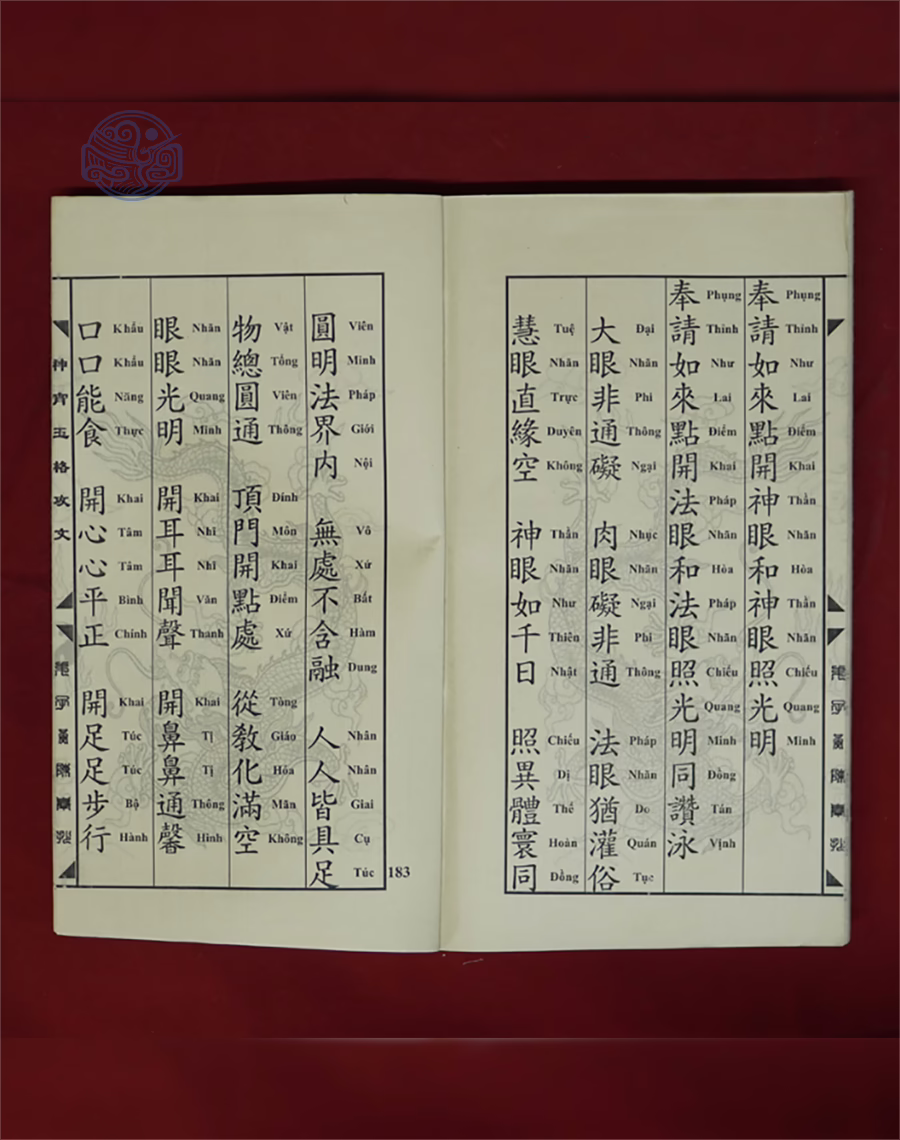 奉請如來點開神眼和神眼照光明
Phụng Thỉnh Như Lai Điểm Khai Thần Nhãn Hòa Thần Nhãn Chiếu Quang Minh
奉請如來點開法眼和法眼照光明同讚泳
Phụng Thỉnh Như Lai Điểm Khai Pháp Nhãn Hòa Pháp Nhãn Chiếu Quang Minh Đồng Tán Vịnh
大眼非通礙 肉眼礙非通 法眼猶灌俗
Đại Nhãn Phi Thông Ngại Nhục Nhãn Ngại Phi Thông Pháp Nhãn Do Quán Tục
慧眼直緣空 神眼如千日 照異體寰同
Tuệ Nhãn Trực Duyên Không Thần Nhãn Như Thiên Nhật Chiếu Dị Thể Hoàn Đồng
圓明法界内 無處不含融 人人皆具足
Viên Minh Pháp Giới Nội Vô Xứ Bất Hàm Dung Nhân Nhân Giai Cụ Túc
物總圓通 頂門開點處 從教化滿空
Vật Tổng Viên Thông Đỉnh Môn Khai Điểm Xứ Tòng Giáo Hóa Mãn Không
眼眼光明 開耳耳聞聲 開鼻鼻通馨
Nhãn Nhãn Quang Minh Khai Nhĩ Nhĩ Văn Thanh Khai Tị Tị Thông Hinh
口口能食 開心心平正 開足足步行
Khẩu Khẩu Năng Thực Khai Tâm Tâm Bình Chính Khai Túc Túc Bộ Hành
玉格攻文
183